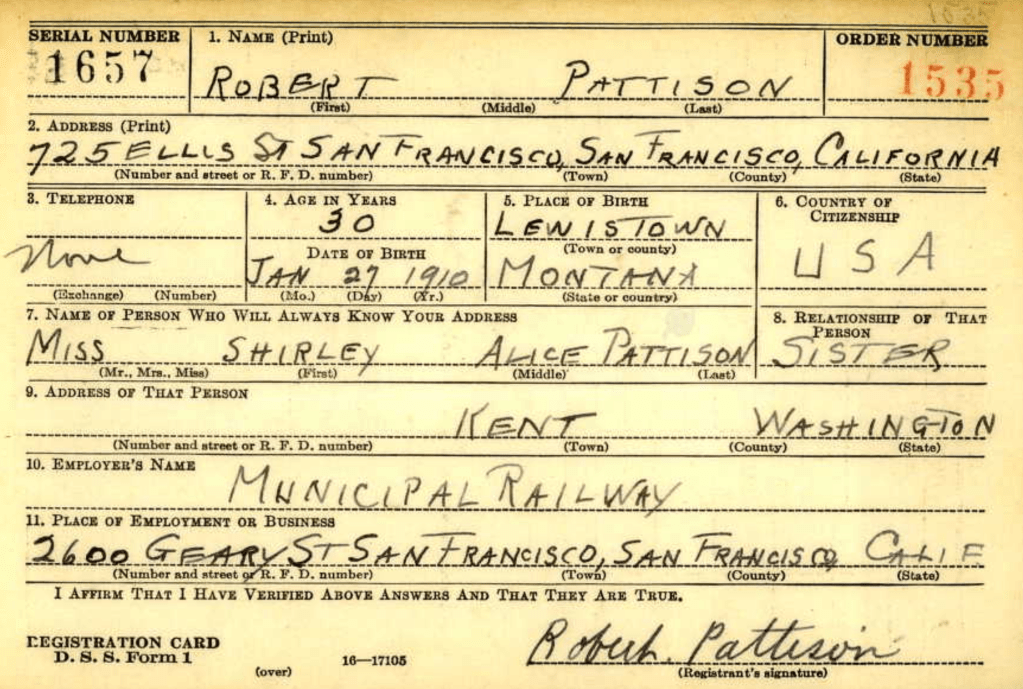 SERIAL NUMBER 1. NAME (Print) ORDER NUMBER
1657 ROBERT PATTISON 1535
(First) (Middle) (Last)
2. ADDRESS (Print)
725 ELLIS ST SAN FRANCISCO, SAN FRANCISCO, CALIFORNIA
(Number and street or R. F. D. number) (Town) (County) (State)
3. TELEPHONE 4. AGE IN YEARS 5. PLACE OF BIRTH 6. COUNTRY OF
CITIZENSHIP
30 LEWISTOWN
DATE OF BIRTH (Town or county)
None JAN 27 1910 MONTANA USA
(Exchange) (Number) (Mo.) (Day) (Yr.) (State or country)
7. NAME OF PERSON WHO WILL ALWAYS KNOW YOUR ADDRESS 8. RELATIONSHIP OF THAT
PERSON
MISS SHIRLEY ALICE PATTISON SISTER
(Mr., Mrs., Miss) (First) (Middle) (Last)
9. ADDRESS OF THAT PERSON
KENT WASHINGTON
(Number and street or R. F. D. number) (Town) (County) (State)
10. EMPLOYER'S NAME
MUNICIPAL RAILWAY
11. PLACE OF EMPLOYMENT OR BUSINESS
2600 GEARY ST SAN FRANCISCO, SAN FRANCISCO, CALIF
(Number and street or R. F. D. number) (Town) (County) (State)
I AFFIRM THAT I HAVE VERIFIED ABOVE ANSWERS AND THAT THEY ARE TRUE.
REGISTRATION CARD
D. S. S. Form 1 (over) 16—17105 Robert Pattison
(Registrant's signature)